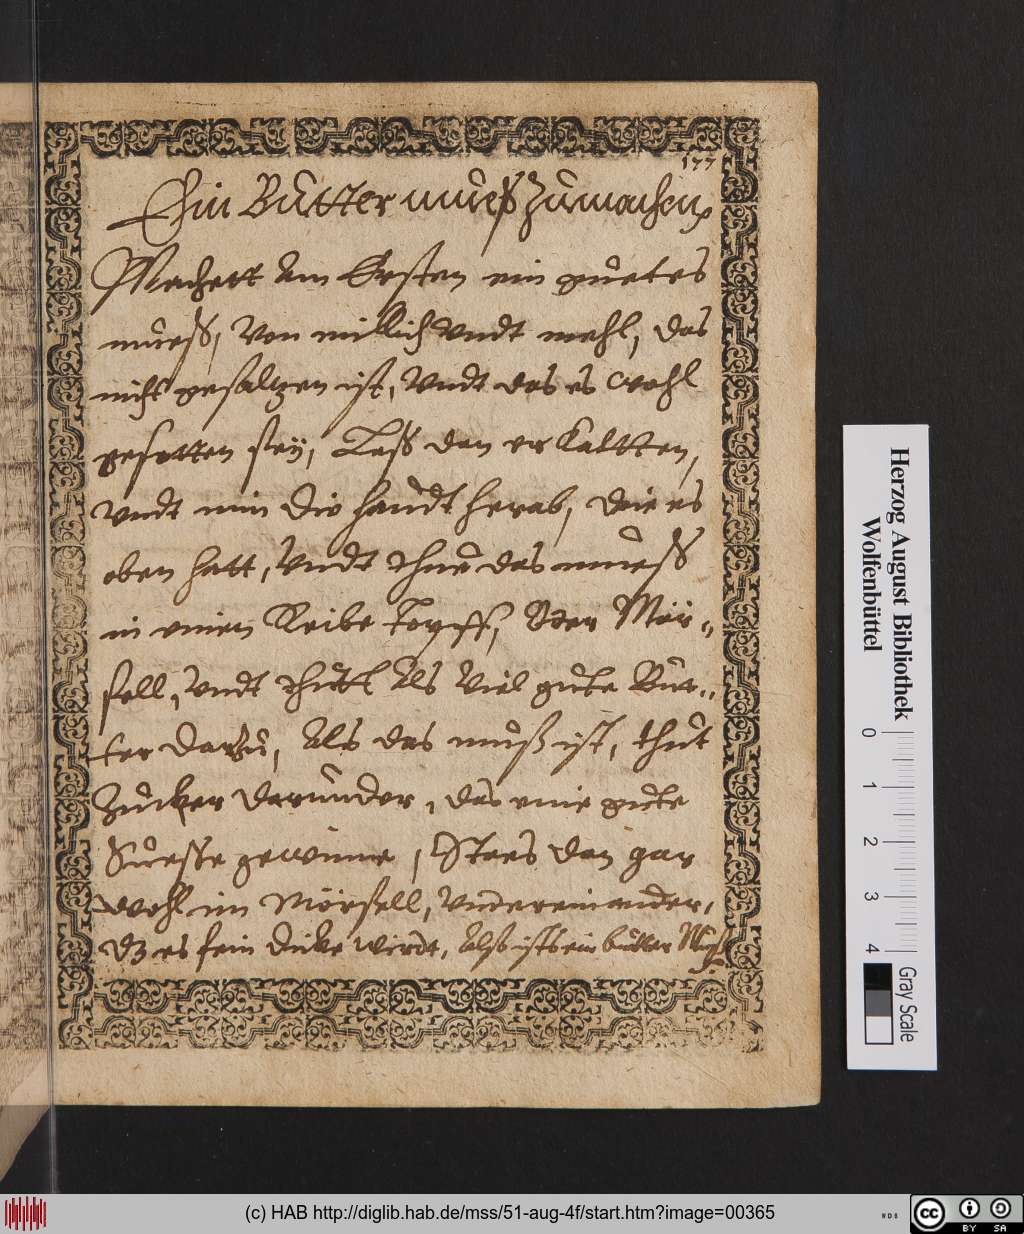 177
Ein Butter mueß Zumachen
Machett Am Ersten ein guetes
mueß, Von millich Vndt mehl, das
nicht gesaltzen ist, Vndt das es wohl
gesotten sey, Laß dan er kaltten,
Vndt nim die haudt herab, die es
oben hatt, Vndt thue das mueß
in einen Reibe topff, Oder Mör-
sell, Vndt thutt Als Viel gute But-
ter darzu, Als das muß ist, thut
Zucker darunder, das eine gute
Suesse gewinne, Stoes dan gar
wohl im Mörsell, Vndereinander,
dz es fein dicke wirdt, Also ists ein butter Mueß
Herzog August Bibliothek
Wolfenbüttel
0 1 2 3 4
Gray Scale
(c) HAB http://diglib.hab.de/mss/51-aug-4f/start.htm?image=00365
WDB
cc BY SA